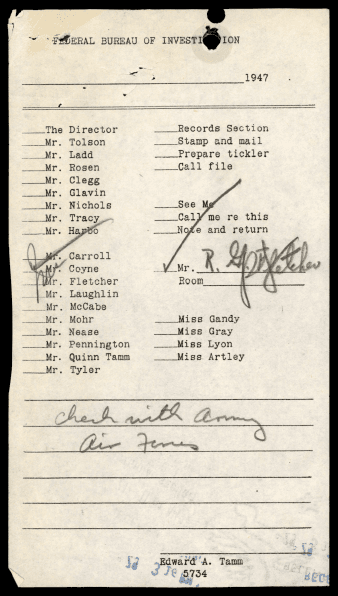 FEDERAL BUREAU OF INVESTIGATION
1947
The Director
Mr. Tolson
Mr. Ladd
Mr. Rosen
Mr. Clegg
Mr. Glavin
Mr. Nichols
Mr. Tracy
Mr. Harbo
Mr. Carroll
Mr. Coyne
Mr. Fletcher
Mr. Laughlin
Mr. McCabe
Mr. Mohr
Mr. Nease
Mr. Pennington
Mr. Quinn Tamm
Mr. Tyler
Records Section
Stamp and mail
Prepare tickler
Call file
See Me
Call me re this
Note and return
Mr. R. G. Fletcher
Room
Miss Gandy
Miss Gray
Miss Lyon
Miss Artley
check with Army
Air Forces
Edward A. Tamm
5734